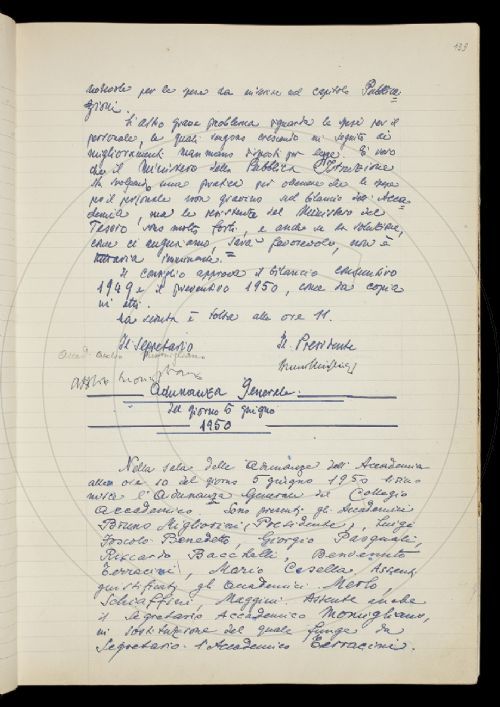 139
notevole per le spese da mettere nel capitolo Pubblica-
zioni.
L'altro grave problema riguarda le spese per il
personale, le quali vengono crescendo in seguito ai
miglioramenti man mano disposti per legge. È vero
che il Ministero della Pubblica Istruzione
sta svolgendo una pratica per ottenere che le spese
per il personale non gravino sul bilancio dell'Acca-
demia, ma le resistenze del Ministero del
Tesoro sono molto forti, e anche se la soluzione,
come ci auguriamo, sarà favorevole, non è
tuttavia imminente. =
Il consiglio approva il bilancio consuntivo
1949 e il preventivo 1950, come da copia
in atti.
La seduta è tolta alle ore 11.
Il Segretario Il Presidente
Momigliano
Attilio Momigliano Bruno Migliorini
Adunanza Generale
del giorno 5 giugno
1950
Nella sala delle Adunanze dell'Accademia
alle ore 10 del giorno 5 giugno 1950 si riu-
nisce l'Adunanza Generale del Collegio
Accademico. Sono presenti gli Accademici
Bruno Migliorini (Presidente), Luigi
Foscolo Benedetto, Giorgio Pasquali,
Riccardo Bacchelli, Benvenuto
Terracini, Mario Casella. Assenti
giustificati gli Accademici Merlo,
Schiaffini, Maggini. Assente anche
il Segretario Accademico Momigliano,
in sostituzione del quale funge da
Segretario l'Accademico Terracini.